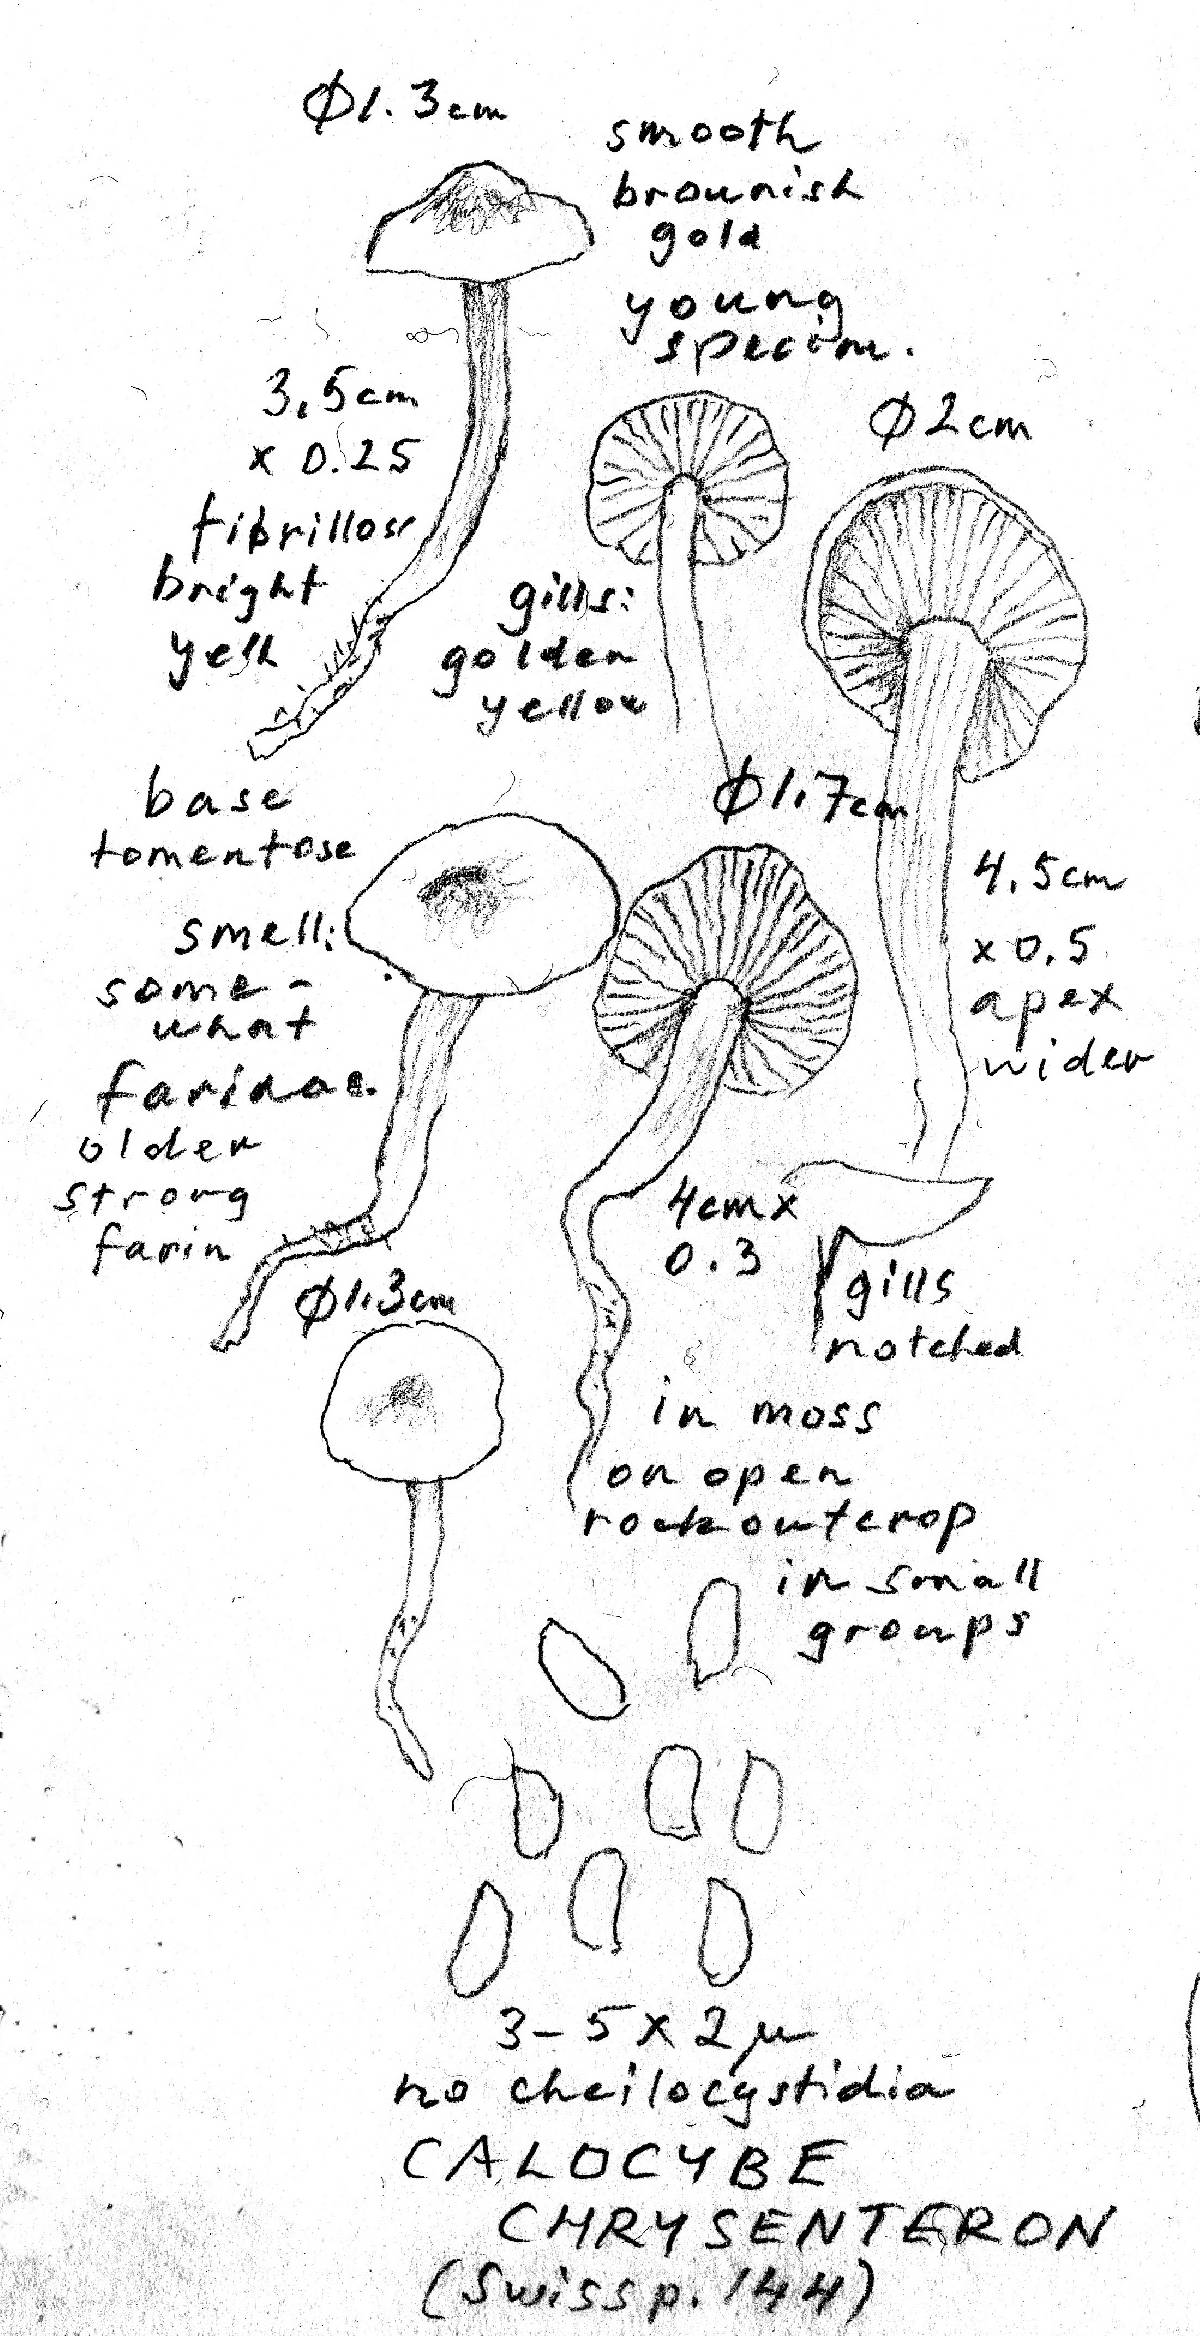 Ø1.3cm
smooth
brownish
gold
young
specim.
3.5cm
x 0.25
fibrillos
bright
yell
Ø2cm
gills:
golden
yellow
base
tomentose
Ø1.7cm
4.5cm
x 0.5
apex
wider
smell:
some-
what
farinac.
older
strong
farin
4cm x
0.3
gills
notched
Ø1.3cm
in moss
on open
rock outcrop
in small
groups
3-5 x 2 µ
no cheilocystidia
CALOCYBE
CHRYSENTERON
(Swiss p. 144)